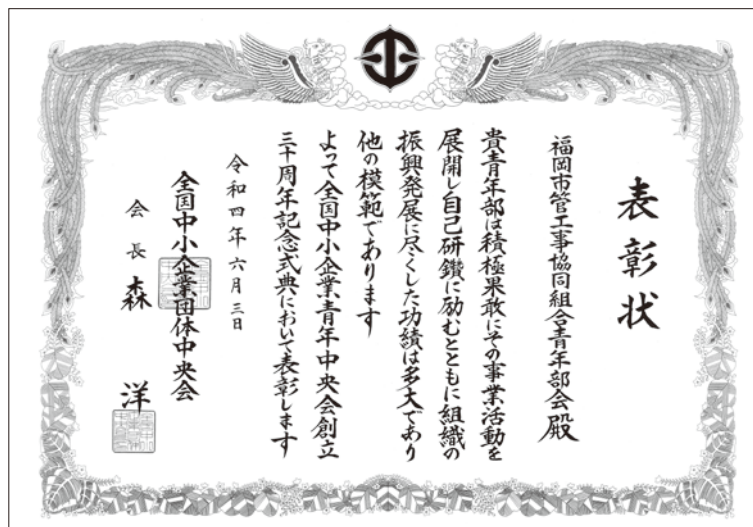 表彰状
福岡市管工事協同組合青年部会殿
貴青年部は積極果敢にその事業活動を
展開し自己研鑽に励むとともに組織の
振興発展に尽くした功績は多大であり
他の模範であります
よって全国中小企業青年中央会創立
三十周年記念式典において表彰します
令和四年六月三日
全国中小企業団体中央会
会長 森 洋